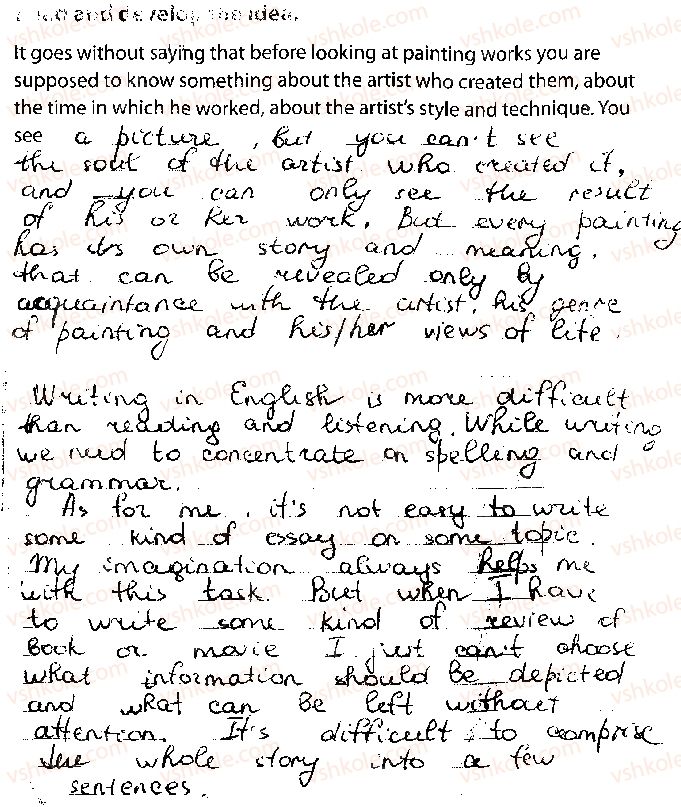 and develop the idea.
It goes without saying that before looking at painting works you are
supposed to know something about the artist who created them, about
the time in which he worked, about the artist's style and technique. You
see a picture, but you can't see
the soul of the artist who created it,
and you can only see the result
of his or her work. But every painting
has its own story and meaning,
that can be revealed only by
acquaintance with the artist, his genre
of painting and his/her views of life.
Writing in English is more difficult
than reading and listening. While writing
we need to concentrate on spelling and
grammar.
As for me, it's not easy to write
some kind of essay on some topic.
My imagination always helps me
with this task. But when I have
to write some kind of review of
book or movie I just can't choose
what information should be depicted
and what can be left without
attention. It's difficult to comprise
the whole story into a few
sentences.